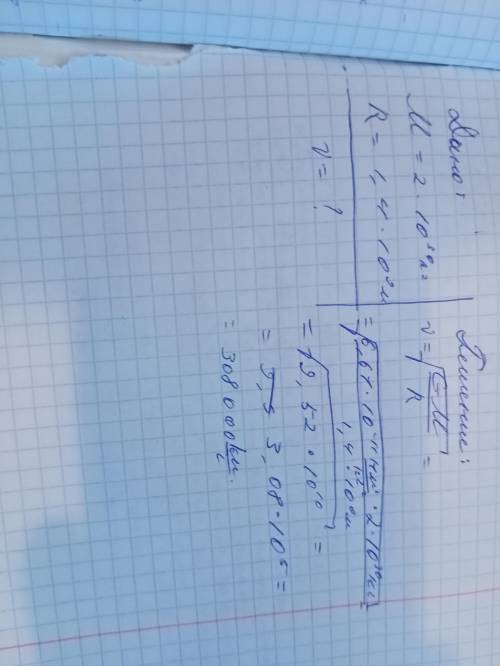 Дано:
M = 2 · 10³⁰ кг
R = 1,4 · 10⁹ м
v = ?
Решение:
v = √GM/R =
= √6,67 · 10⁻¹¹ Нм²/кг² · 2 · 10³⁰ кг / 1,4 · 10⁹ м =
= √9,52 · 10¹⁰ =
= 3,08 · 10⁵ =
= 308 000 км/с.